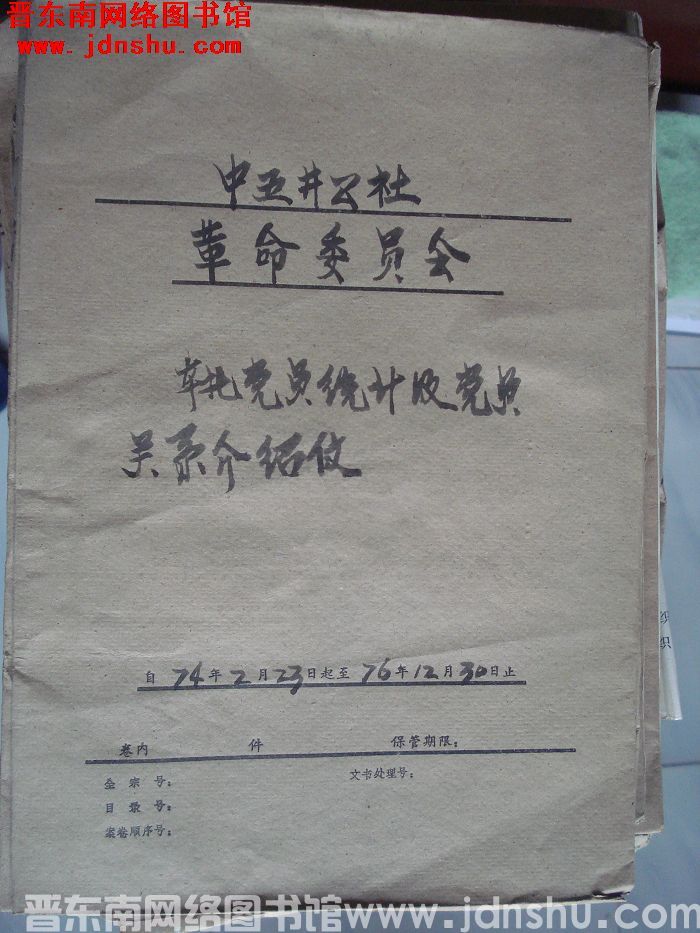 晋东南网络图书馆
www.jdnshu.com
中五井公社
革命委员会
党员统计及党员
关系介绍信
自74年2月23日起至76年12月30日止
卷内 件 保管期限:
全宗号: 文书处理号:
目录号:
案卷顺序号:
织
织
晋东南网络图书馆www.jdnshu.com